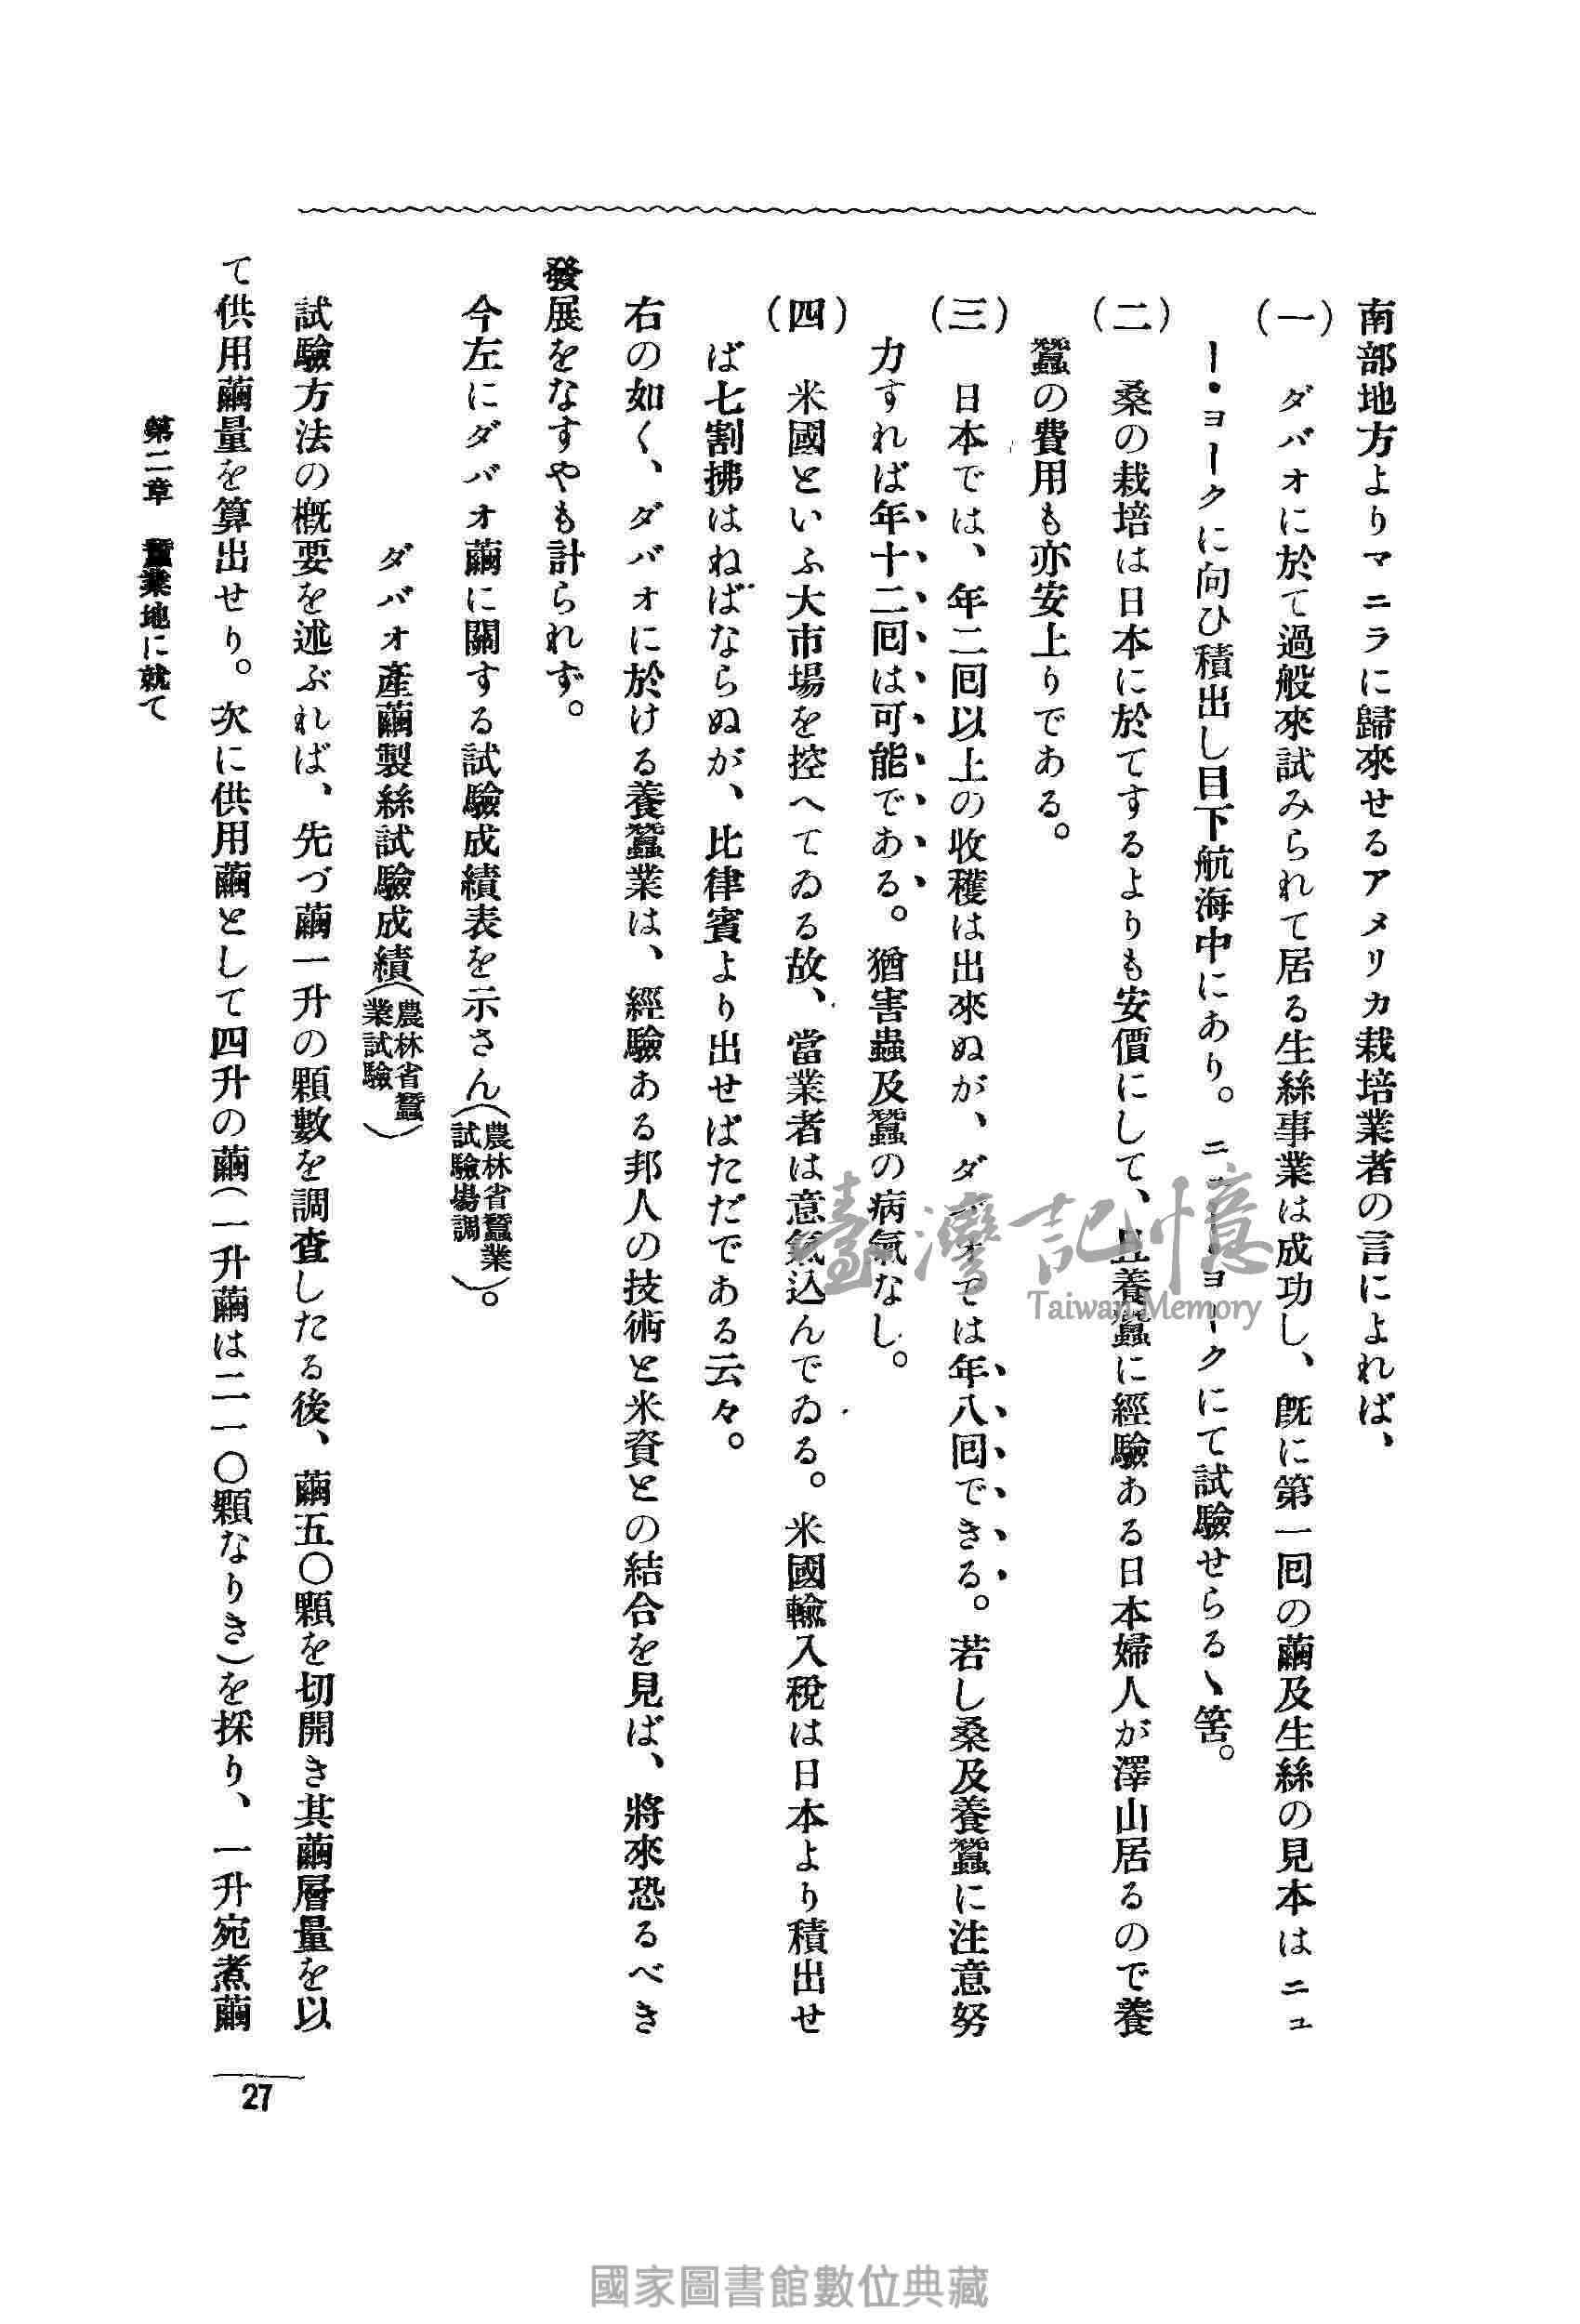 南部地方よりマニラに歸來せるアメリカ栽培業者の言によれば、
(一) ダバオに於て過般來試みられて居る生絲事業は成功し、既に第一回の繭及生絲の見本はニュ
ー・ヨークに向ひ積出し目下航海中にあり。ニュー・ヨークにて試驗せらるヽ筈。
(二) 桑の栽培は日本に於てするよりも安價にして、且養蠶に經驗ある日本婦人が澤山居るので養
蠶の費用も亦安上りである。
(三) 日本では、年二回以上の收穫は出來ぬが、ダバオでは年八回できる。若し桑及養蠶に注意努
力すれば年十二回は可能である。猶害蟲及蠶の病氣なし。
(四) 米國といふ大市場を控へてゐる故、當業者は意氣込んでゐる。米國輸入稅は日本より積出せ
ば七割拂はねばならぬが、比律賓より出せばただである云々。
右の如く、ダバオに於ける養蠶業は、經驗ある邦人の技術と米資との結合を見ば、將來恐るべき
發展をなすやも計られず。
今左にダバオ繭に關する試驗成績表を示さん(農林省蠶業試驗場調)。
ダバオ産繭製絲試驗成績(農林省蠶業試驗)
試驗方法の概要を述ぶれば、先づ繭一升の顆數を調査したる後、繭五〇顆を切開き其繭層量を以
て供用繭量を算出せり。次に供用繭として四升の繭(一升繭は二一〇顆なりき)を採り、一升宛煮繭
第二章 蠶業地に就て
27
臺灣記憶
Taiwan Memory
國家圖書館數位典藏